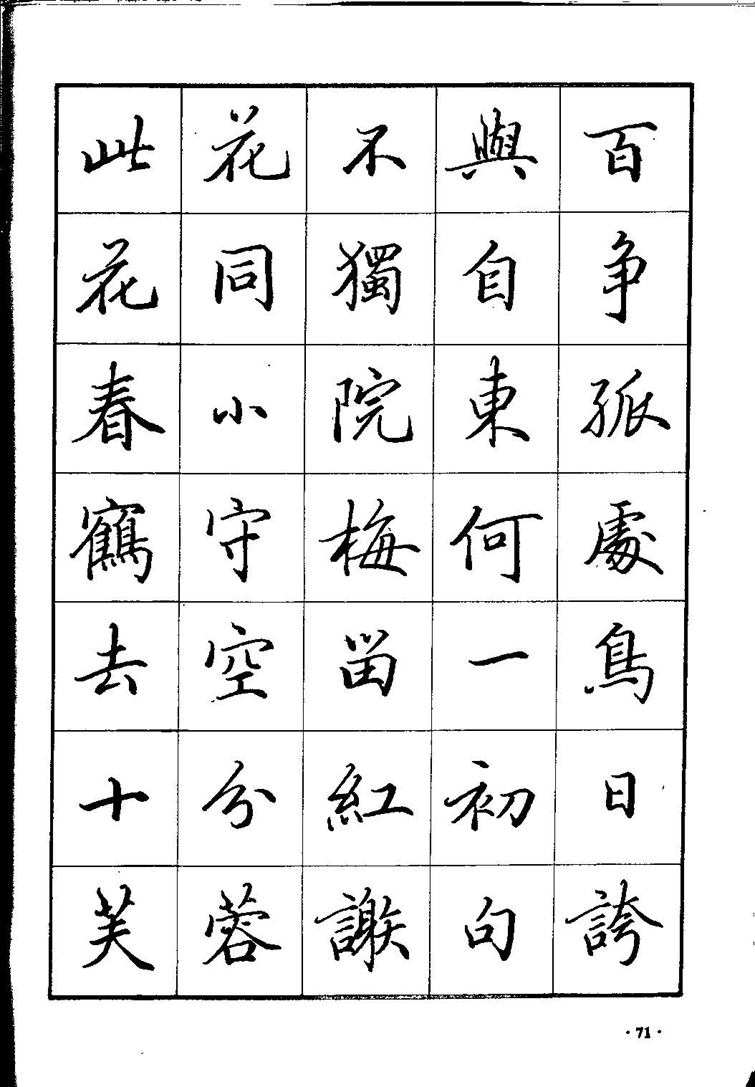 此花不與百
花同獨自争
春小院東孤
鶴守梅何處
去空留一鳥
十分紅初日
芙蓉謝句誇
·71·